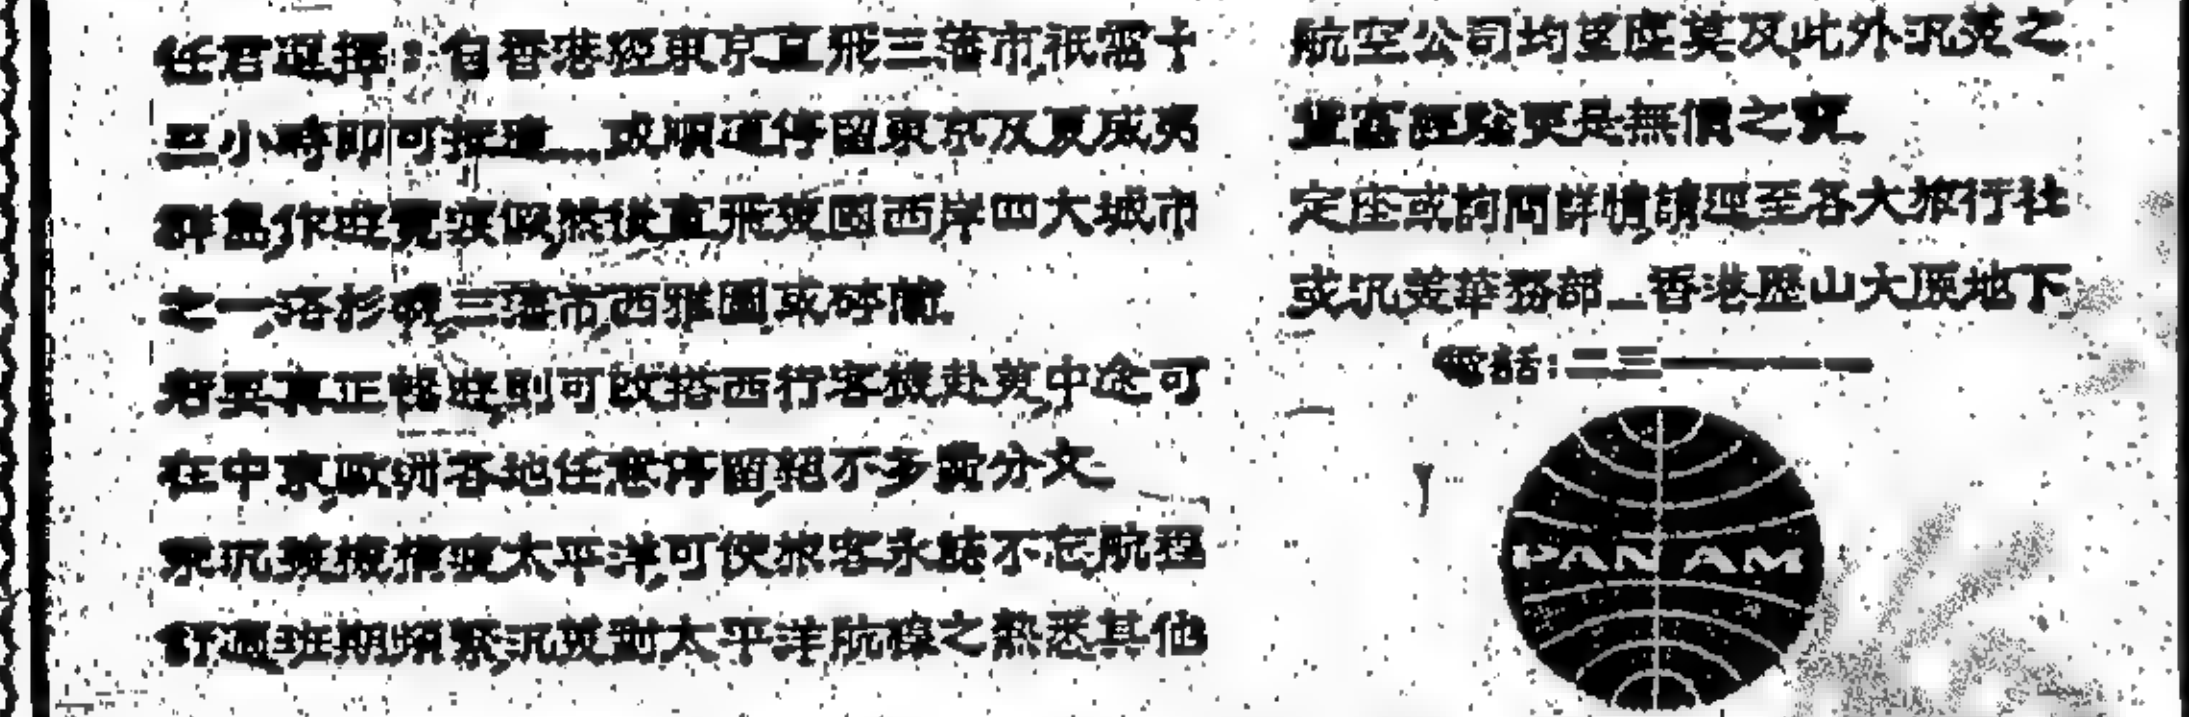 任君選擇：自香港經東京直飛三藩市祇需十
三小時即可抵達—或順道停留東京及夏威夷
群島作遊覽渡假然後直飛美國西岸四大城市
之一洛杉磯三藩市西雅圖或砵蘭。
若要真正暢遊則可改搭西行客機赴美中途可
在中東歐洲各地任意停留絕不多費分文。
乘汎美機橫渡太平洋可使旅客永誌不忘航程
舒適班期頻繁汎美對太平洋航線之熟悉其他
航空公司均望塵莫及此外汎美之
豐富經驗更是無價之寶。
定座或詢問詳情請逕至各大旅行社
或汎美華務部—香港歷山大廈地下
電話：二三一一一一
PAN AM